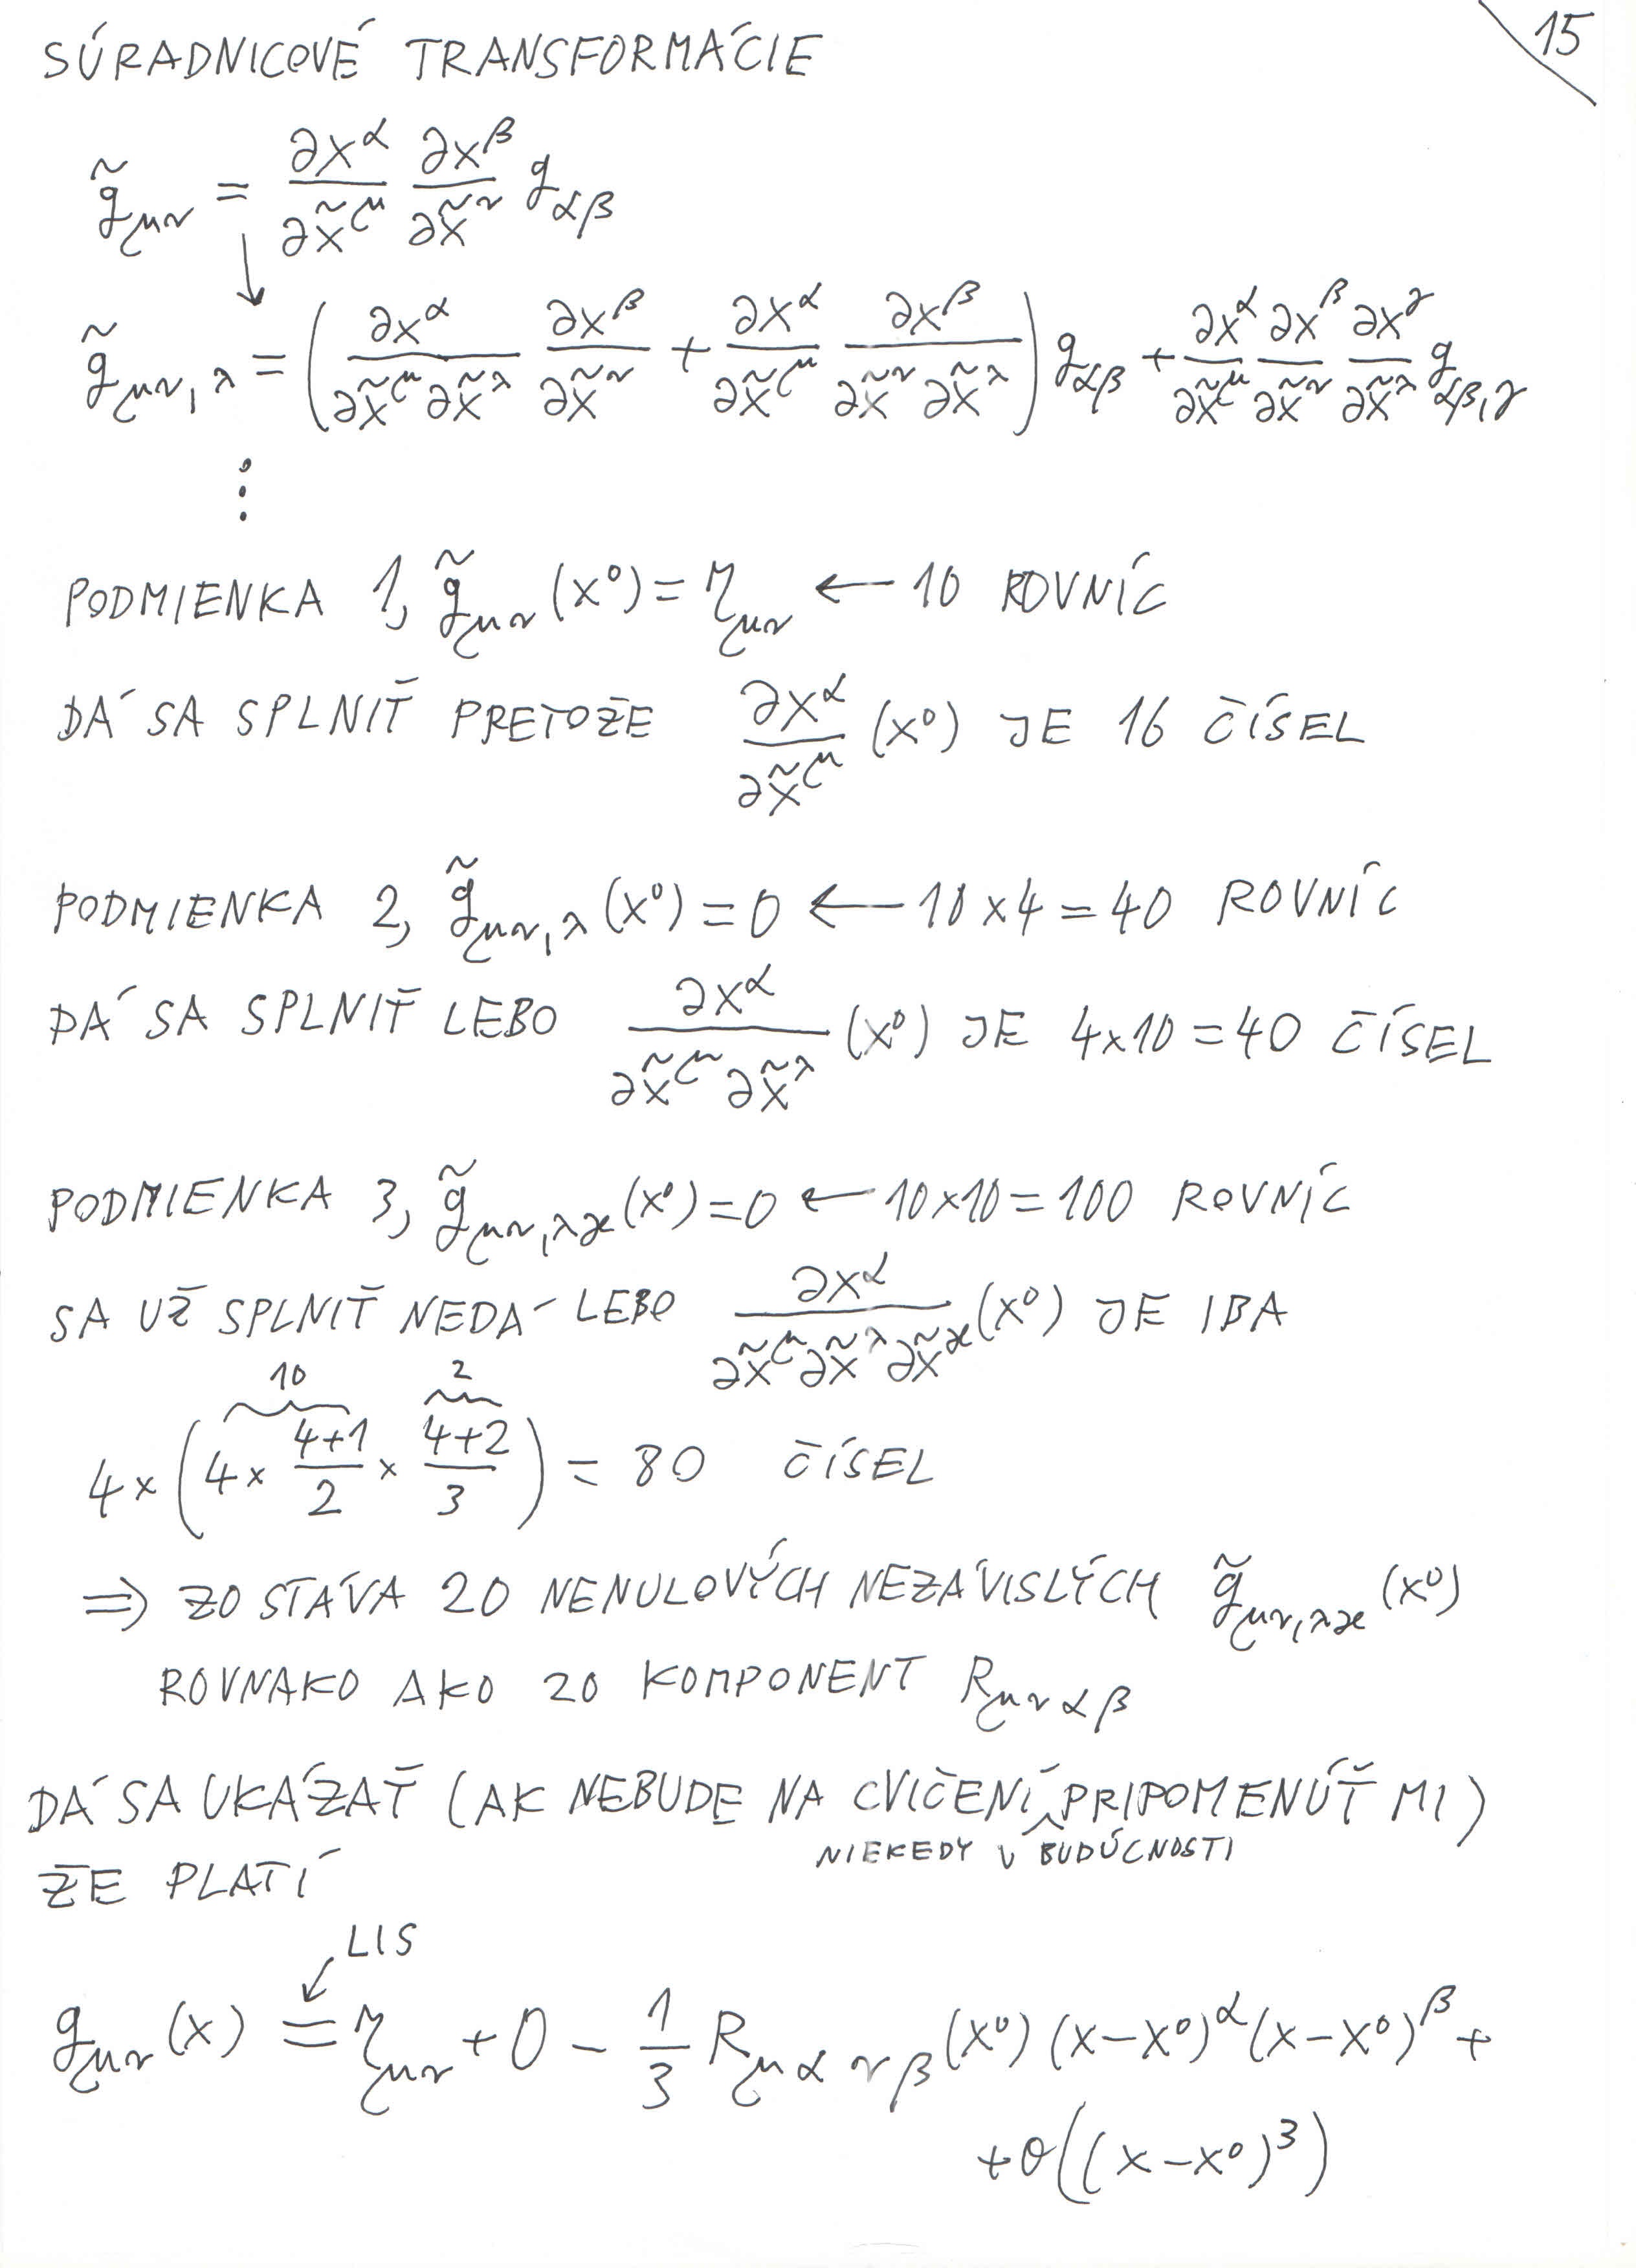 SÚRADNICOVÉ TRANSFORMÁCIE
15
g̃_μν = ∂x^α/∂x̃^μ ∂x^β/∂x̃^ν g_αβ
↓
g̃_μν,λ = (∂x^α/∂x̃^μ∂x̃^λ ∂x^β/∂x̃^ν + ∂x^α/∂x̃^μ ∂x^β/∂x̃^ν∂x̃^λ) g_αβ + ∂x^α/∂x̃^μ ∂x^β/∂x̃^ν ∂x^γ/∂x̃^λ g_αβ,γ
⋮
PODMIENKA 1, g̃_μν (x⁰) = η_μν ← 10 ROVNÍC
DÁ SA SPLNIŤ PRETOŽE ∂x^α/∂x̃^μ (x⁰) JE 16 ČÍSEL
PODMIENKA 2, g̃_μν,λ (x⁰) = 0 ← 10 × 4 = 40 ROVNÍC
DÁ SA SPLNIŤ LEBO ∂x^α/∂x̃^μ∂x̃^λ (x⁰) JE 4×10 = 40 ČÍSEL
PODMIENKA 3, g̃_μν,λϰ (x⁰) = 0 ← 10×10 = 100 ROVNÍC
SA UŽ SPLNIŤ NEDÁ LEBO ∂x^α/∂x̃^μ∂x̃^λ∂x̃^ϰ (x⁰) JE IBA
10 2
4 × (4 × (4+1)/2 × (4+2)/3) = 80 ČÍSEL
⇒ ZOSTÁVA 20 NENULOVÝCH NEZÁVISLÝCH g̃_μν,λϰ (x⁰)
ROVNAKO AKO 20 KOMPONENT R_μναβ
DÁ SA UKÁZAŤ (AK NEBUDE NA CVIČENÍ PRIPOMENÚŤ MI)
NIEKEDY V BUDÚCNOSTI
ŽE PLATÍ
LIS
g_μν (x) = η_μν + 0 − 1/3 R_μανβ (x⁰) (x−x⁰)^α (x−x⁰)^β +
+ O((x−x⁰)³)